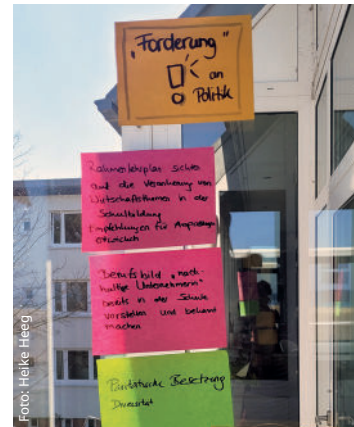 „Forderung"
! an
Politik
Rahmenlehrplan sichten
auf die Verankerung von
Wirtschaftsthemen in der
Schulbildung
Empfehlungen für Anpassung
Berufsbild „nach-
haltige Unternehmerin"
bereits in der Schule
vorstellen und bekannt
machen
Paritätische Besetzung
Diversität
Foto: Heike Heeg